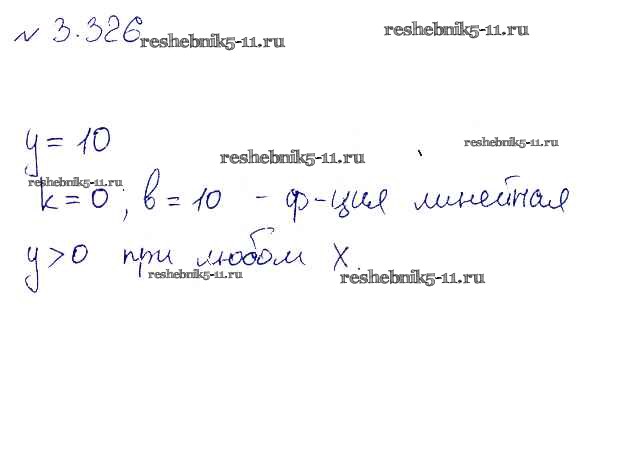 № 3.326 reshebnik5-11.ru reshebnik5-11.ru
y = 10 reshebnik5-11.ru reshebnik5-11.ru
reshebnik5-11.ru
k = 0 ; в = 10 - ф-ция линейная
y > 0 при любом x.
reshebnik5-11.ru reshebnik5-11.ru